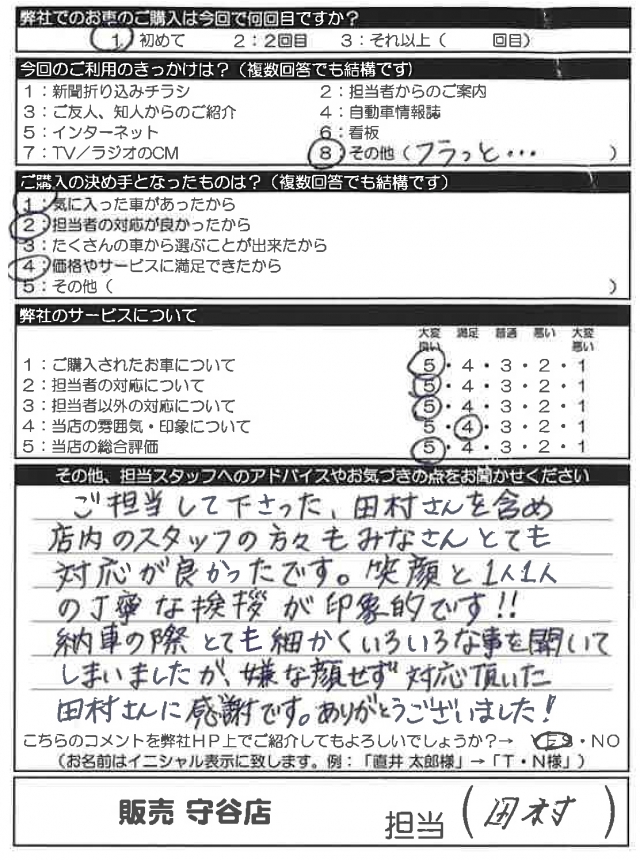 弊社でのお車のご購入は今回で何回目ですか？
1 初めて 2：2回目 3：それ以上（ 回目）
今回のご利用のきっかけは？（複数回答でも結構です）
1：新聞折り込みチラシ 2：担当者からのご案内
3：ご友人、知人からのご紹介 4：自動車情報誌
5：インターネット 6：看板
7：TV／ラジオのCM 8：その他（フラっと… ）
ご購入の決め手となったものは？（複数回答でも結構です）
1：気に入った車があったから
2：担当者の対応が良かったから
3：たくさんの車から選ぶことが出来たから
4：価格やサービスに満足できたから
5：その他（ ）
弊社のサービスについて
大変良い 満足 普通 悪い 大変悪い
1：ご購入されたお車について 5・4・3・2・1
2：担当者の対応について 5・4・3・2・1
3：担当者以外の対応について 5・4・3・2・1
4：当店の雰囲気・印象について 5・4・3・2・1
5：当店の総合評価 5・4・3・2・1
その他、担当スタッフへのアドバイスやお気づきの点をお聞かせください
ご担当して下さった、田村さんを含め
店内のスタッフの方々もみなさんとても
対応が良かったです。笑顔と1人1人
の丁寧な挨拶が印象的です!!
納車の際とても細かくいろいろな事を聞いて
しまいましたが、嫌な顔せず対応頂いた
田村さんに感謝です。ありがとうございました！
こちらのコメントを弊社HP上でご紹介してもよろしいでしょうか？→ YES・NO
（お名前はイニシャル表示に致します。例：「直井 太郎様」→「T・N様」）
販売 守谷店 担当（田村）